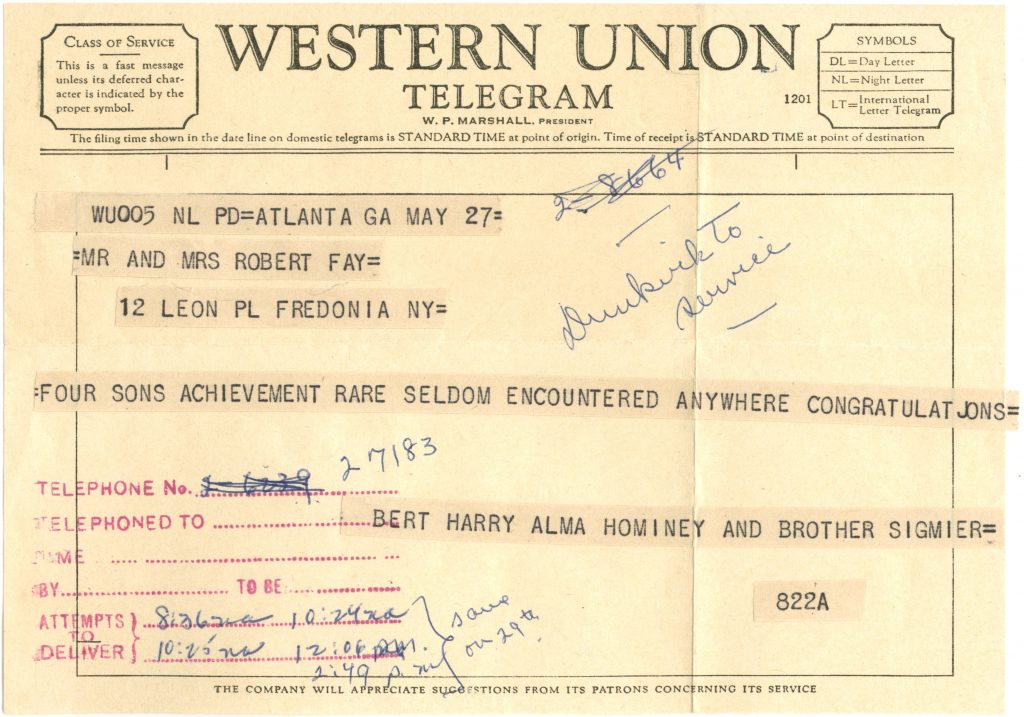 CLASS OF SERVICE
This is a fast message
unless its deferred char-
acter is indicated by the
proper symbol.
WESTERN UNION
TELEGRAM
W. P. MARSHALL, PRESIDENT
1201
SYMBOLS
DL=Day Letter
NL=Night Letter
LT=International Letter Telegram
The filing time shown in the date line on domestic telegrams is STANDARD TIME at point of origin. Time of receipt is STANDARD TIME at point of destination
2-8664
WU005 NL PD=ATLANTA GA MAY 27=
=MR AND MRS ROBERT FAY=
12 LEON PL FREDONIA NY=
Dunkirk to
service
=FOUR SONS ACHIEVEMENT RARE SELDOM ENCOUNTERED ANYWHERE CONGRATULATJONS=
27183
TELEPHONE No.
TELEPHONED TO
BERT HARRY ALMA HOMINEY AND BROTHER SIGMIER=
NAME
BY TO BE
822A
ATTEMPTS TO DELIVER
8:36 na 10:24 na
10:25 na 12:06 p.m.
2:49 p.m.
same
on 29th
THE COMPANY WILL APPRECIATE SUGGESTIONS FROM ITS PATRONS CONCERNING ITS SERVICE